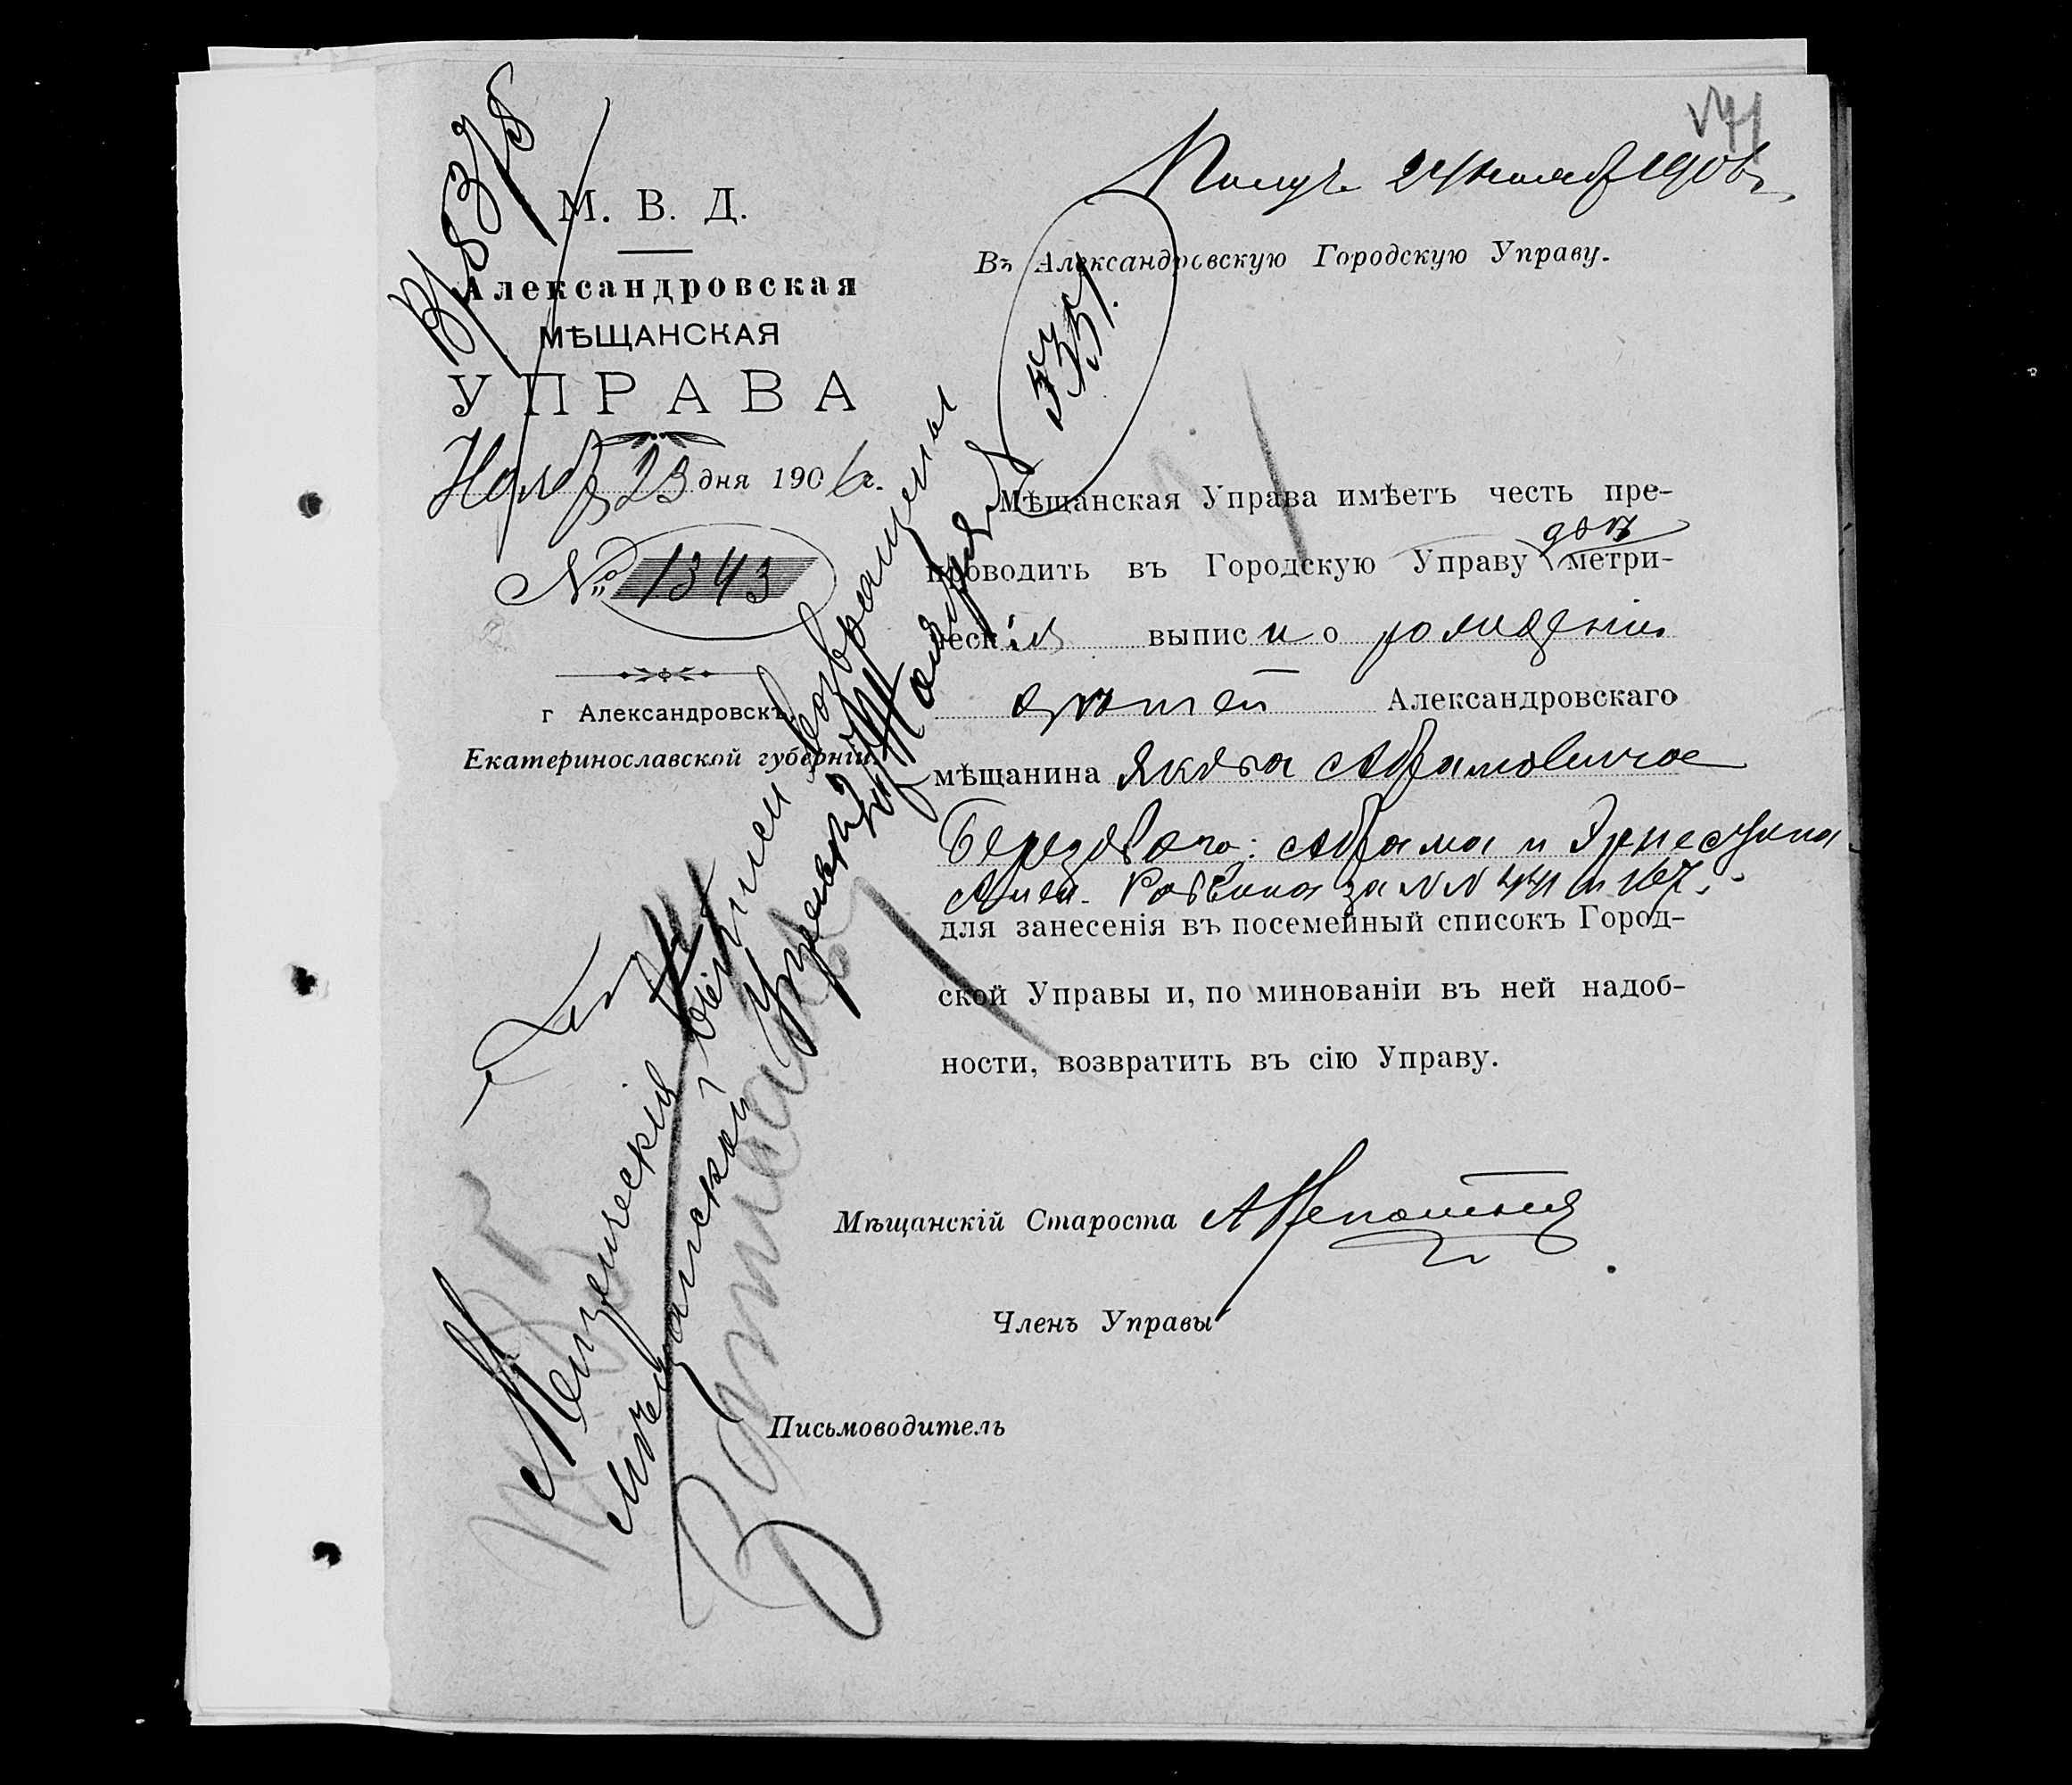 В/8378
171
Получ. 24 Ноября 1906 г.
М. В. Д.
Александровская
МѢЩАНСКАЯ
УПРАВА
Нояб 23 дня 1906 г.
№ 1343
г Александровскъ,
Екатеринославской губерніи.
Въ Александровскую Городскую Управу.
Мѣщанская Управа имѣетъ честь пре-
проводить въ Городскую Управу двѣ метри-
ческія выписи о рожденіи
дѣтей Александровскаго
мѣщанина Якова Абрамовича
Березовскаго: Абрама и
за №№ 441 и 167.
для занесенія въ посемейный списокъ Город-
ской Управы и, по минованіи въ ней надоб-
ности, возвратить въ сію Управу.
Мѣщанскій Староста
Членъ Управы
Письмоводитель
Метрическія выписи возвращены
Мѣщанской Управѣ
Ноября